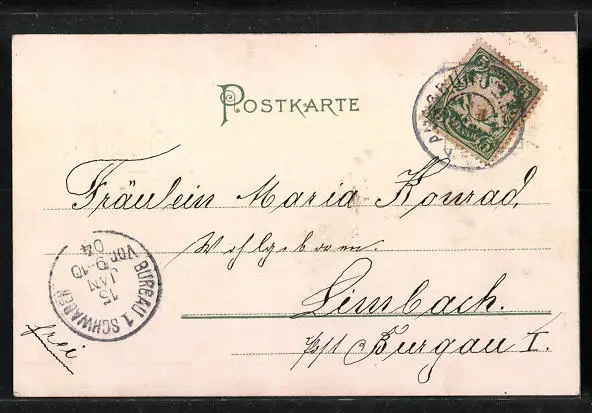 POSTKARTE
Fräulein Maria Konrad,
Wohlgeboren.
Limbach.
Post Burgau I.
frei
BURGAU 1 SCHWABEN
15
JAN
VOR 9-10
04
5 5
5 5